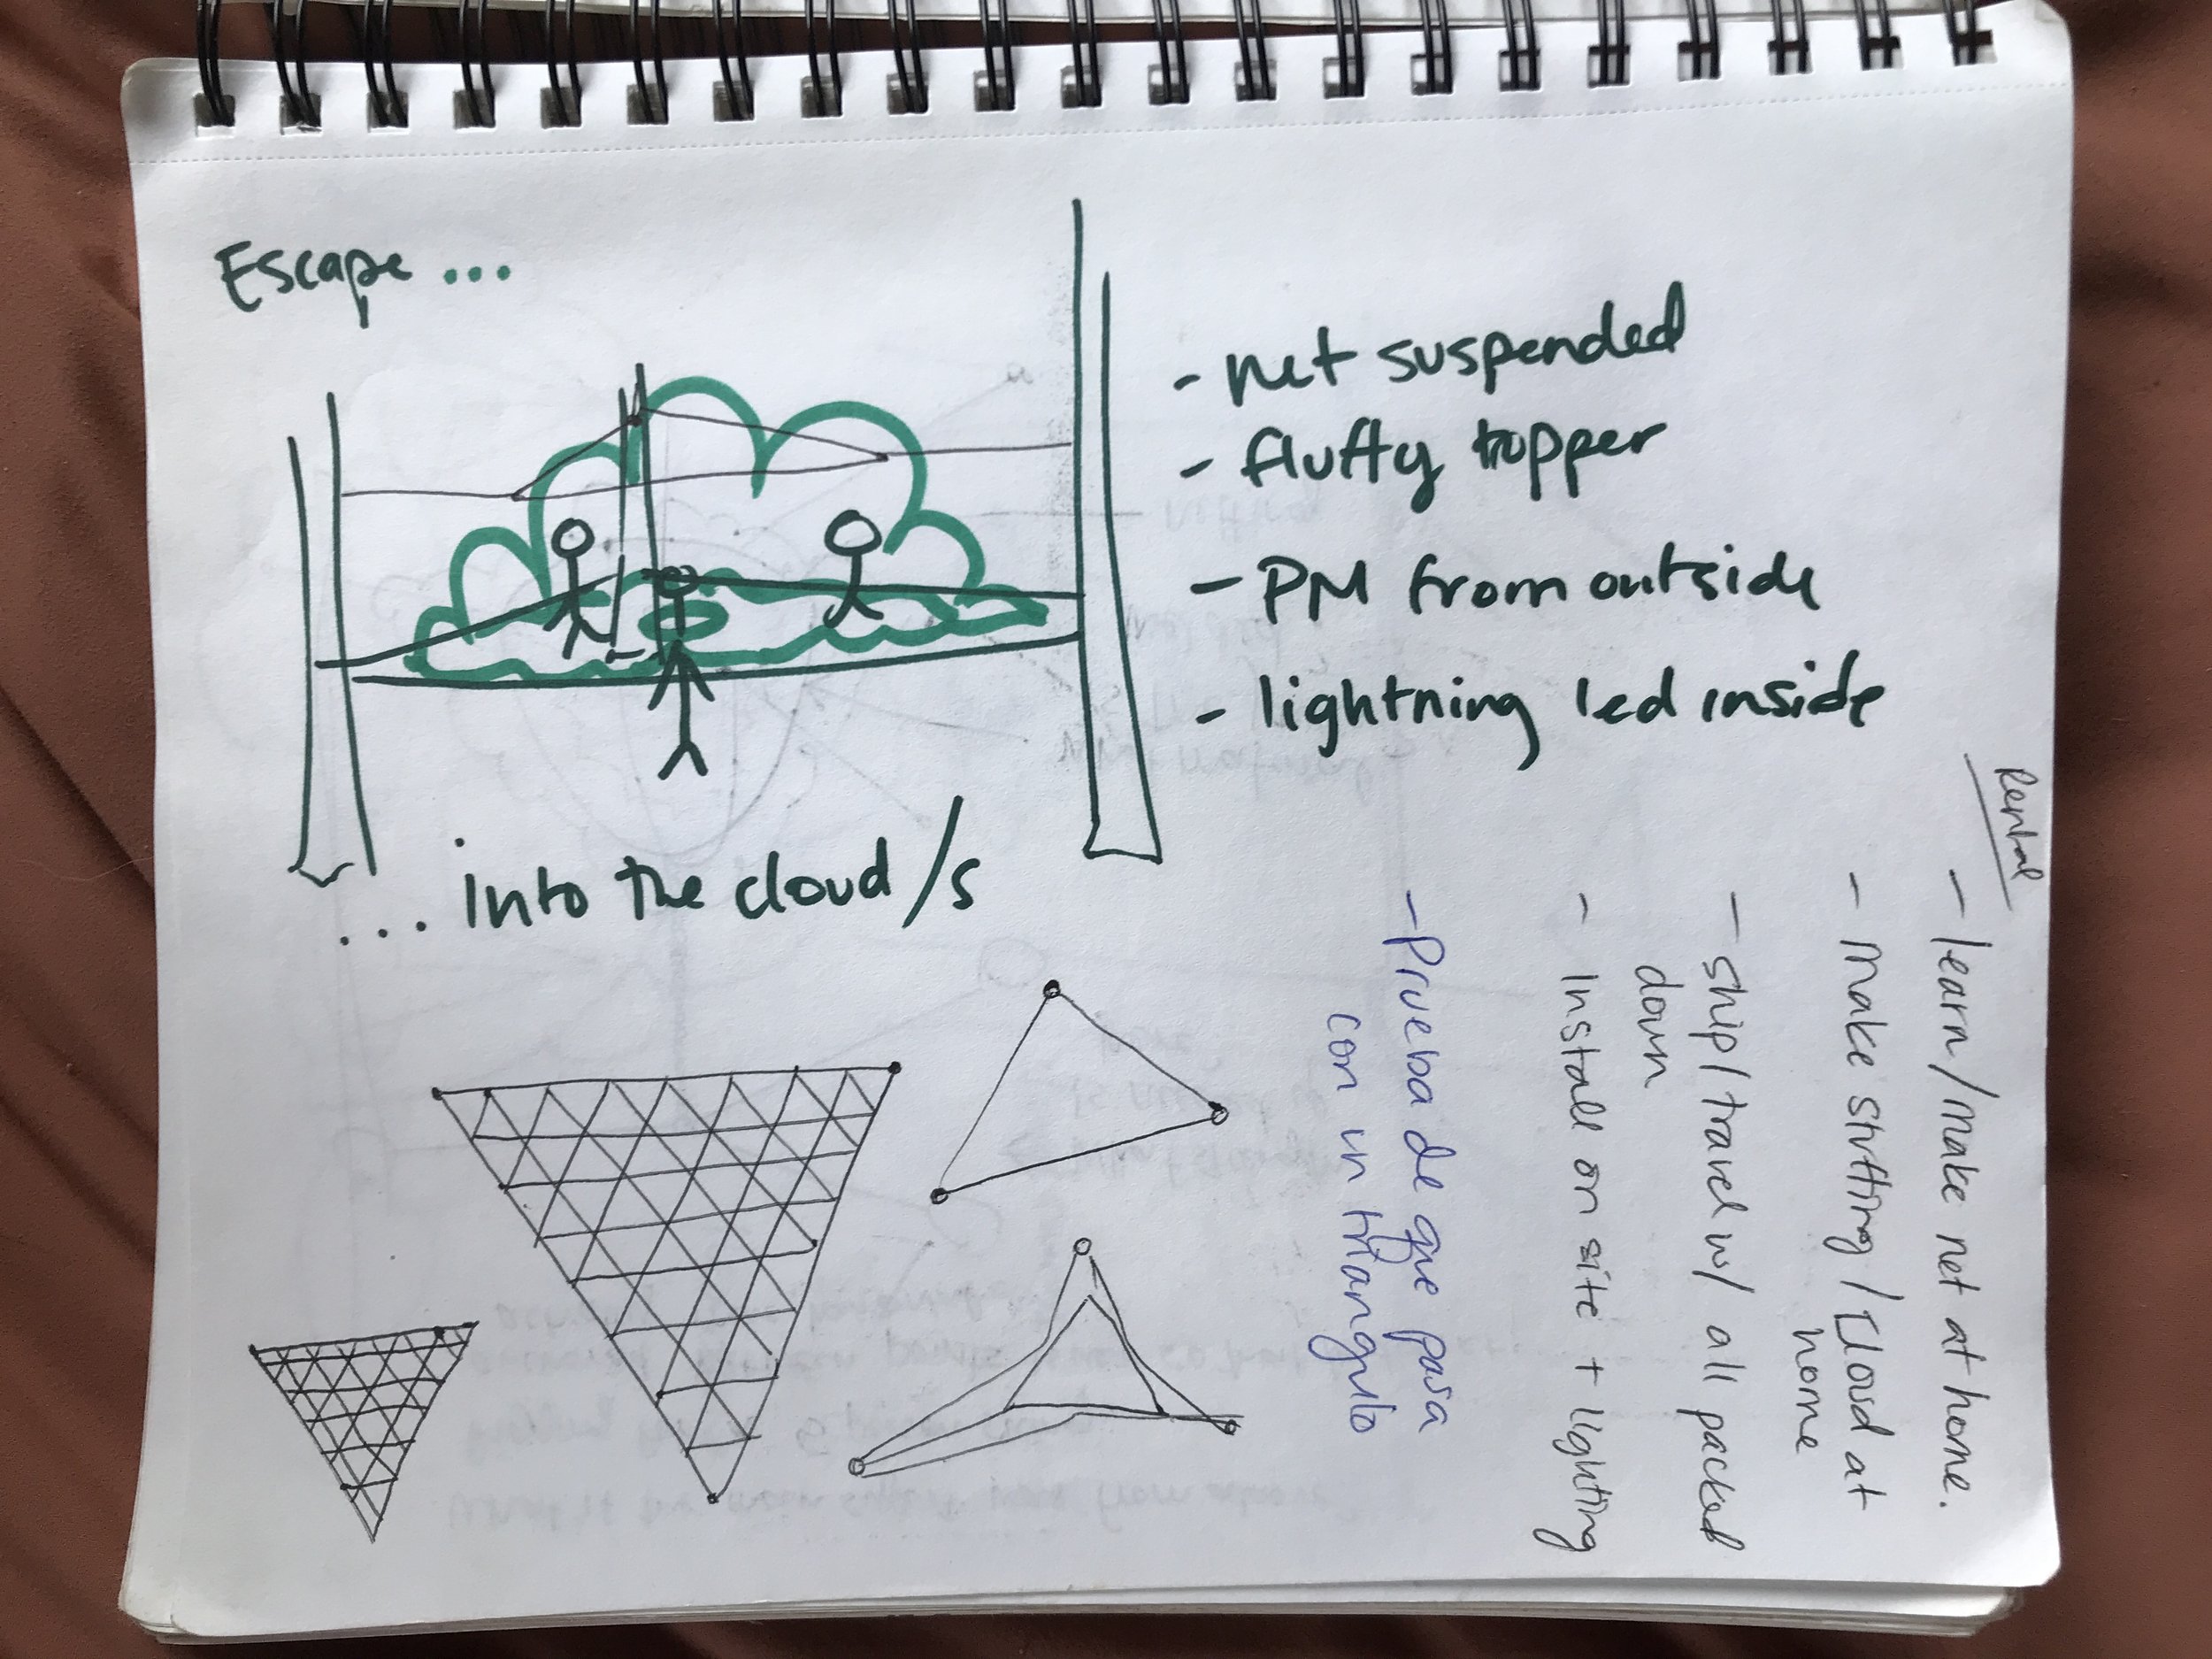 Escape ...
- net suspended
- fluffy topper
- PM from outside
- lightning led inside
... into the cloud/s
Rental
- learn/make net at home.
- make stuffing/cloud at
home
- ship/travel w/ all packed
down
- install on site + lighting
- Prueba de que pasa
con un triangulo